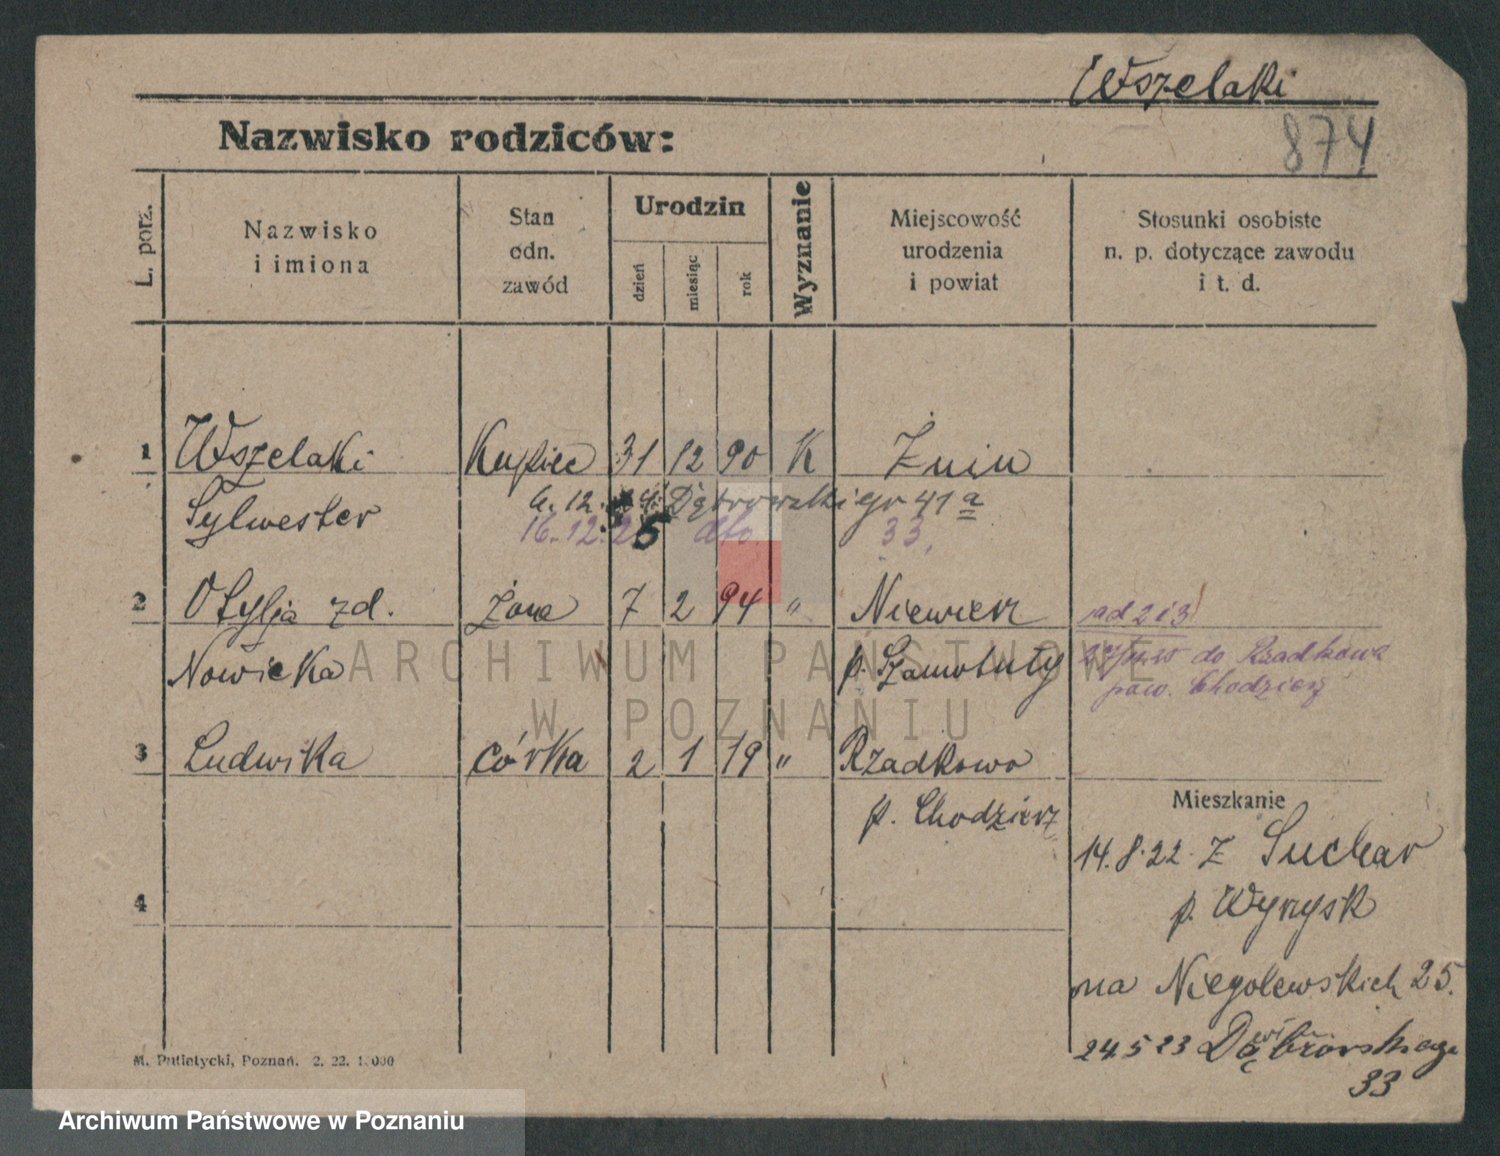 Wszelaki
Nazwisko rodziców:
874
L. porz.
Nazwisko
i imiona
Stan
odn.
zawód
Urodzin
dzień
miesiąc
rok
Wyznanie
Miejscowość
urodzenia
i powiat
Stosunki osobiste
n. p. dotyczące zawodu
i t. d.
1 Wszelaki Kupiec 31 12 90 K Żnin
Sylwester
6. 12. 24. Dąbrowskiego 41 a
16. 12. 25 dto 33.
2 Otylja zd. żona 7 2 94 " Niewierz
ad 2 i 3
Nowicka p. Szamotuły
do Rzadkowa
pow. Chodzież
3 Ludwika córka 2 1 19 " Rzadkowo
p. Chodzież
Mieszkanie
14. 8. 22. z Suchar
4 p. Wyrzysk
na Niegolewskich 25.
24 5 23 Dąbrowskiego
33
M. Putiatycki, Poznań. 2. 22. 1.000
ARCHIWUM PAŃSTWOWE
W POZNANIU
Archiwum Państwowe w Poznaniu